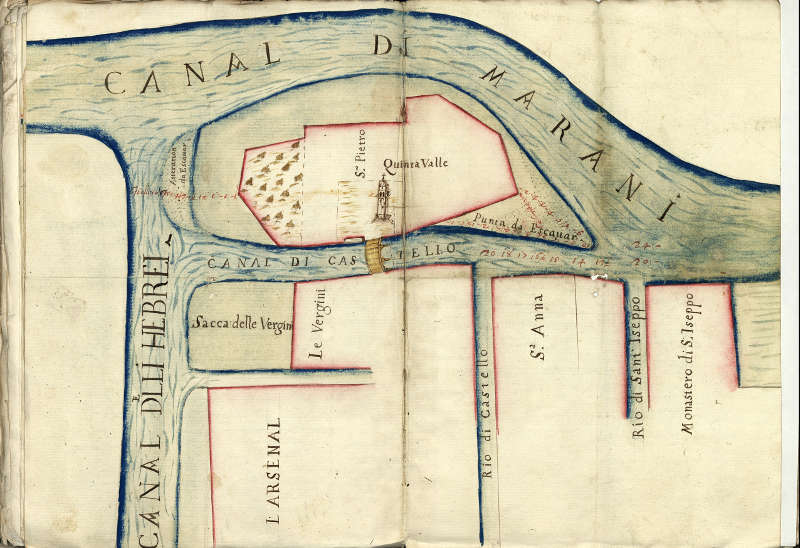 CANAL DI MARANI
Atteration
da Escauar
S.n Pietro
Quinta Valle
Punta da Escauar
CANAL DI CASTELLO
20 18 17 16 18 14 12
24
20
CANAL DLLI HEBREI
Sacca delle Vergini
Le Vergini
L'ARSENAL
Rio di Castello
S.a Anna
Rio di Sant Iseppo
Monastero di S. Iseppo